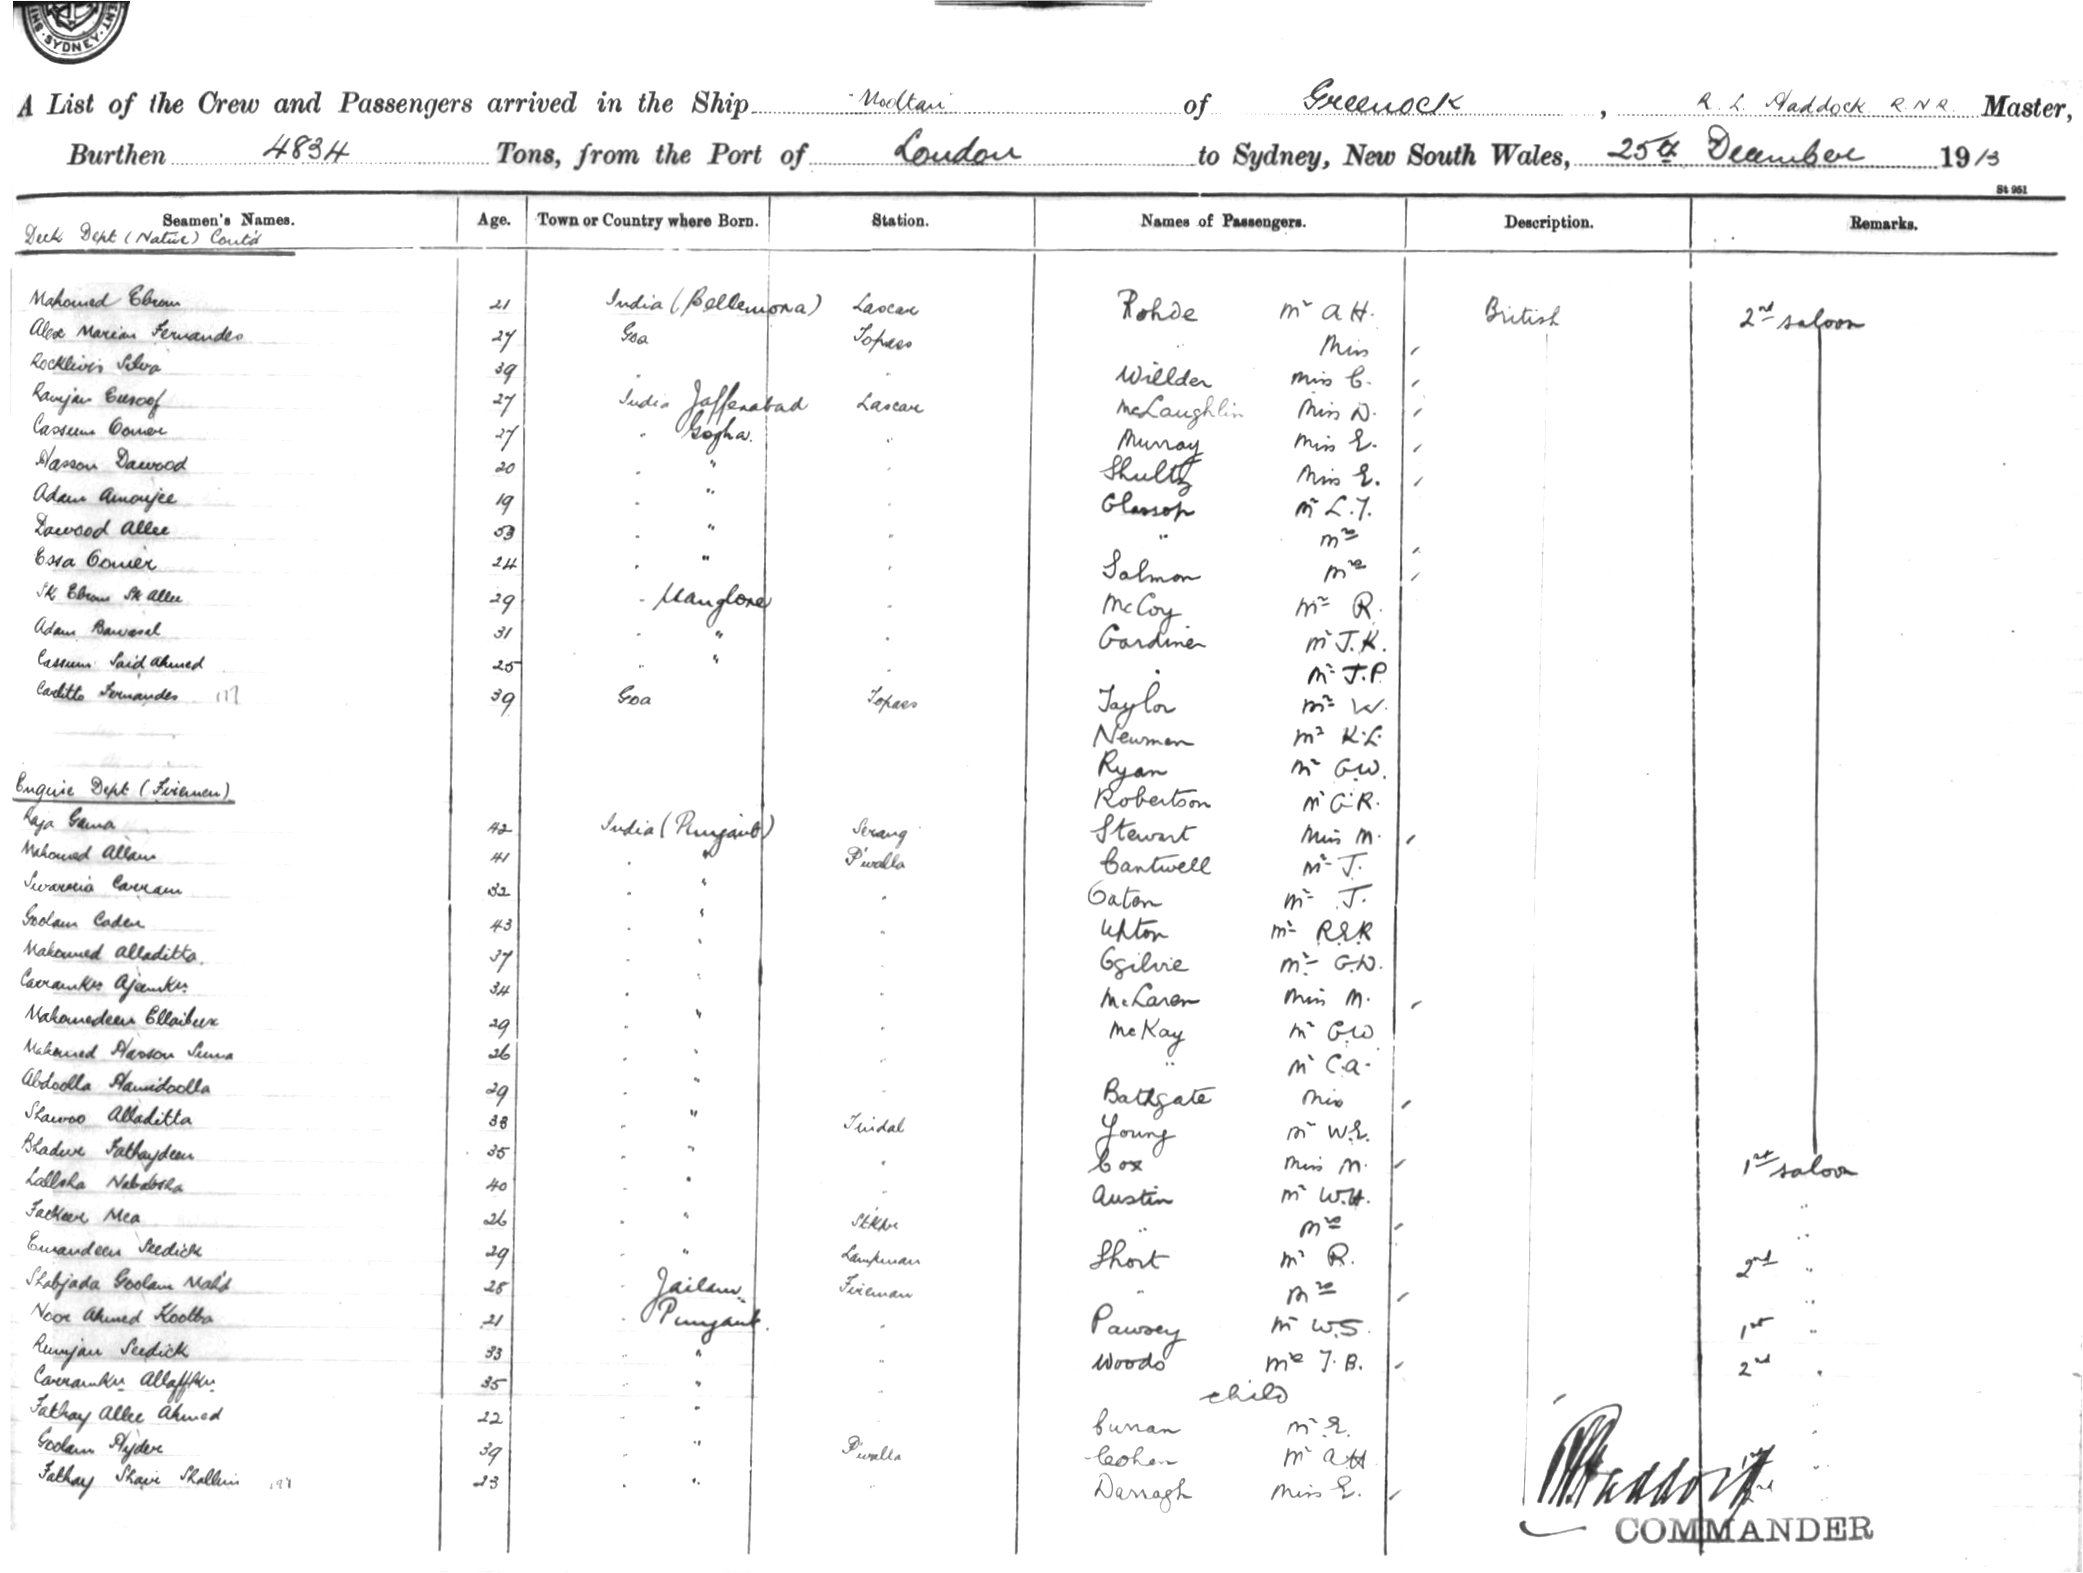 SYDNEY
A List of the Crew and Passengers arrived in the Ship "Mooltan" of Greenock, R. L. Haddock R.N.R. Master,
Burthen 4834 Tons, from the Port of London to Sydney, New South Wales, 25th December 1913
St 951
Seamen's Names. Age. Town or Country where Born. Station. Names of Passengers. Description. Remarks.
Deck Dept (Native) Contd
Mahomed Ebram 21 India (Bellemora) Lascar Rohde Mr A H. British 2nd saloon
Alex Marian Fernandes 27 Goa Topass " Miss
Silva 39 " " Willder Miss C.
Ramjan Eusoof 27 India Jaffenabad Lascar McLaughlin Miss D.
Cassum Oomer 27 " Gogha. " Murray Miss E.
Hasson Dawood 20 " " " Shultz Miss E.
Adam Amoojee 19 " " " Glassop Mr L. J.
Dawood Allee 53 " " " " Mrs
Essa Oomer 24 " " " Salmon Mrs
Sk Ebram Sk Allee 29 " Manglore " McCoy Mr R.
Adam 31 " " " Gardiner Mr J. K.
Cassum Said Ahmed 25 " " " " Mr J. P.
Carlitto Fernandes 39 Goa Topass Taylor Mr W.
Newman Mr K. L.
Ryan Mr G. W.
Engine Dept (Firemen)
Robertson Mr G. R.
Raja Gama 42 India (Punjaub) Serang Stewart Miss M.
Mahomed Allam 41 " " P'walla Cantwell Mr J.
Carram 32 " " " Oaten Mr J.
Goolam Cader 43 " " " Upton Mr R E R
Mahomed Alladitta 37 " " " Ogilvie Mr G. D.
34 " " " McLaren Miss M.
Mahomedeen Ellaibux 29 " " " McKay Mr G W
Mahomed Hasson Suma 26 " " " " Mr C. A.
Abdoolla Hamidoolla 29 " " " Bathgate Miss
Shawoo Alladitta 38 " " Tindal Young Mr W. E.
Fathaydeen 35 " " " Cox Miss M. 1st saloon
Lallsha 40 " " " Austin Mr W. H. "
Fackeer Mea 26 " " " Mrs "
Emandeen Seedick 29 " " Lampman Short Mr R. 2nd "
Shabjada Goolam Mah'd 25 " Jailam Fireman " Mrs "
Noor Ahmed Koolba 21 " Punjaub. " Pawsey Mr W. S. 1st "
Rumjan Seedick 33 " " " Woods Mrs J. B. 2nd "
35 " " " child
Fathay Allee Ahmed 22 " " " Curran Mr E. "
Goolam Hyder 39 " " P'walla Cohen Mr A H "
Fathay 23 " " " Darragh Miss E. "
Haddock
COMMANDER